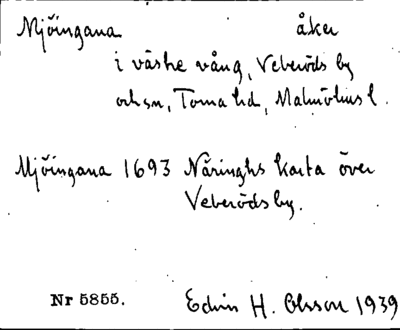 Mjöingana åker
i västre vång, Veberöds by
och sn, Torna hd, Malmöhus l.
Mjöingana 1693 Näringhs karta över
Veberöds by.
Nr 5855. Edvin H. Olsson 1939